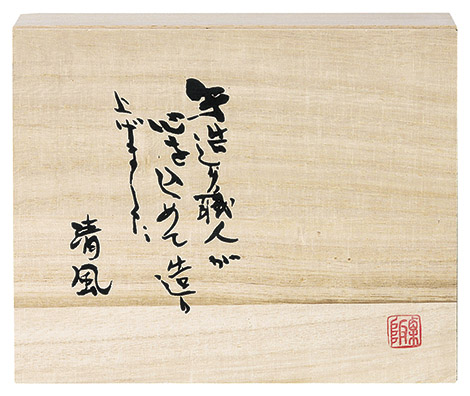 手造り職人が
心を込めて造り
上げました
清風